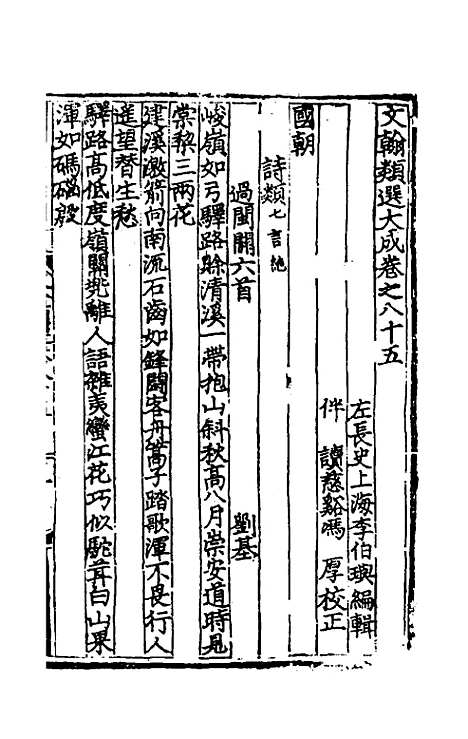 文翰類選大成卷之八十五
左長史上海李伯璵編輯
伴讀慈谿馮厚校正
國朝
詩類七言絶
過閩關六首 劉基
峻嶺如弓驛路賒清溪一帶抱山斜秋高八月崇安道時見
棠梨三兩花
建溪激箭向南流石齒如鋒鬪客舟篙子踏歌渾不畏行人
遥望替生愁
驛路高低度嶺關兠離人語雜夷蠻江花巧似駝茸白山果
渾如碼碯殷